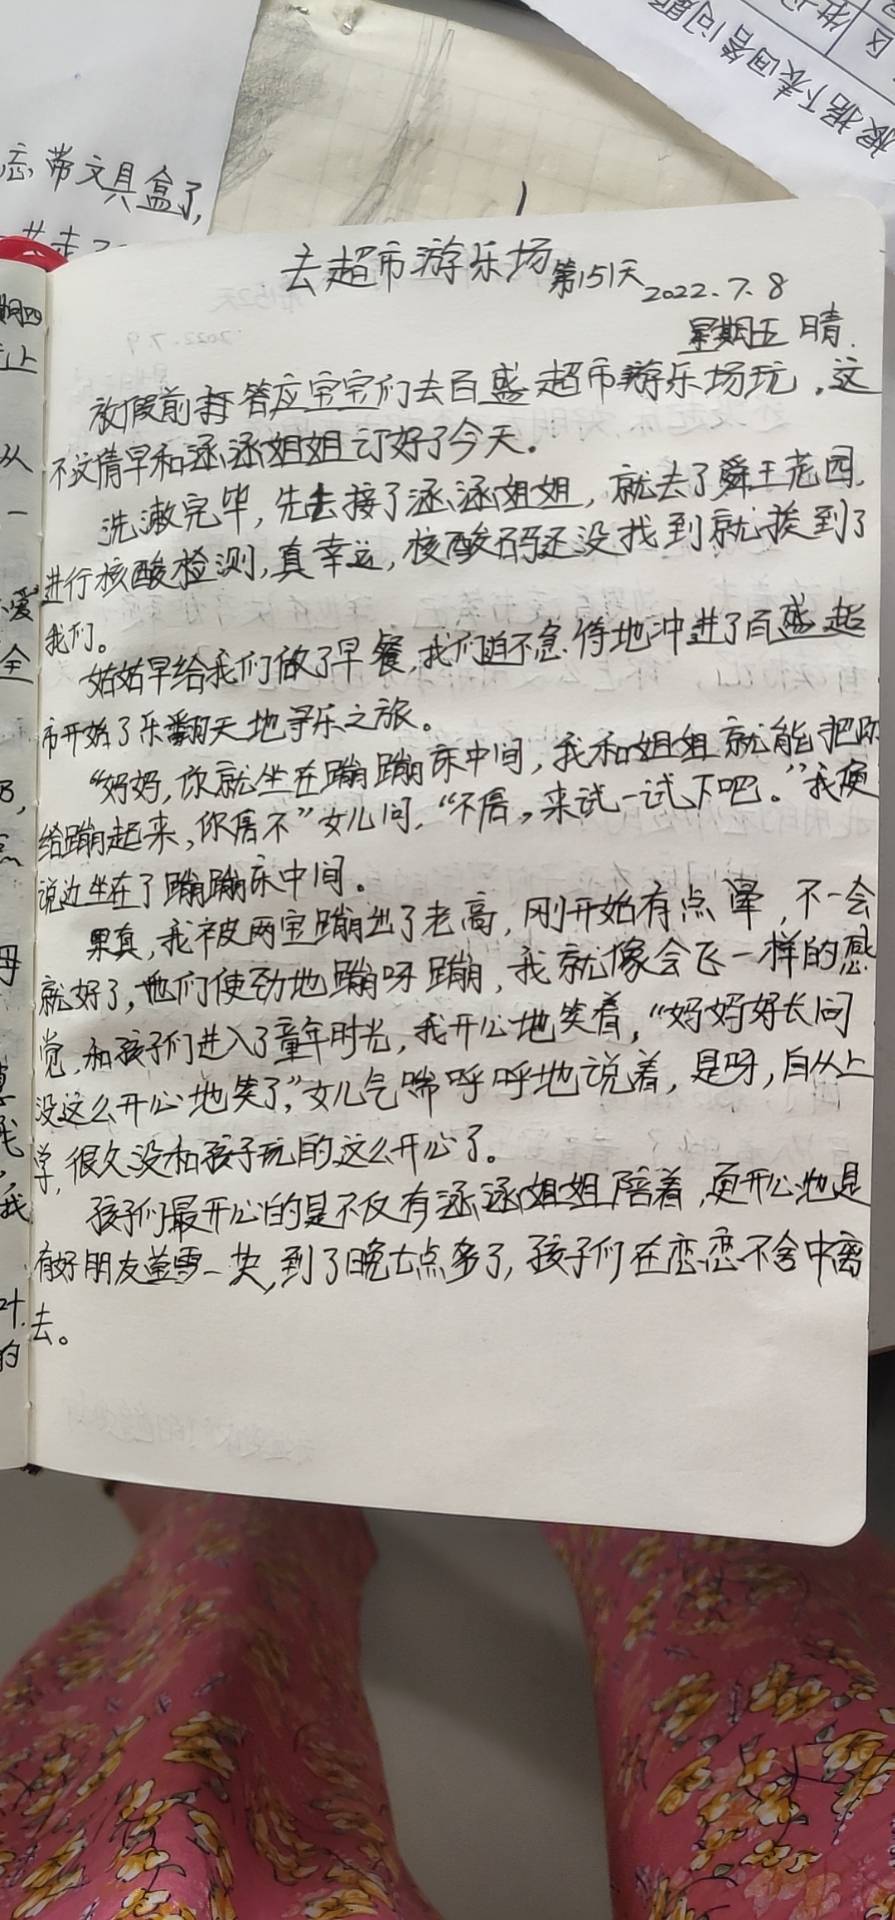 忘带文具盒了,
根据下表回答问题
去超市游乐场 第151天 2022.7.8
星期五 晴.
放假前再答应宝宝们去百盛超市游乐场玩,这
不文倩早和涵涵姐姐订好了今天.
洗漱完毕,先去接了涵涵姐姐,就去了舜王花园,
进行核酸检测,真幸运,核酸码还没找到就挨到了
我们。
姑姑早给我们做了早餐,我们迫不急待地冲进了百盛超
市开始了乐翻天地寻乐之旅。
“妈妈,你就坐在蹦蹦床中间,我和姐姐就能把你
给蹦起来,你信不”女儿问,“不信,来试一试下吧。”我便
说边坐在了蹦蹦床中间。
果真,我被两宝蹦出了老高,刚开始有点晕,不一会
就好了,她们使劲地蹦呀蹦,我就像会飞一样的感
觉,和孩子们进入了童年时光,我开心地笑着,“妈妈好长问
没这么开心地笑了,”女儿气喘呼呼地说着,是呀,自从上
学,很久没和孩子玩的这么开心了。
孩子们最开心的是不仅有涵涵姐姐陪着,更开心地是
有好朋友萱雪一块,到了晚七点多了,孩子们在恋恋不舍中离
去。